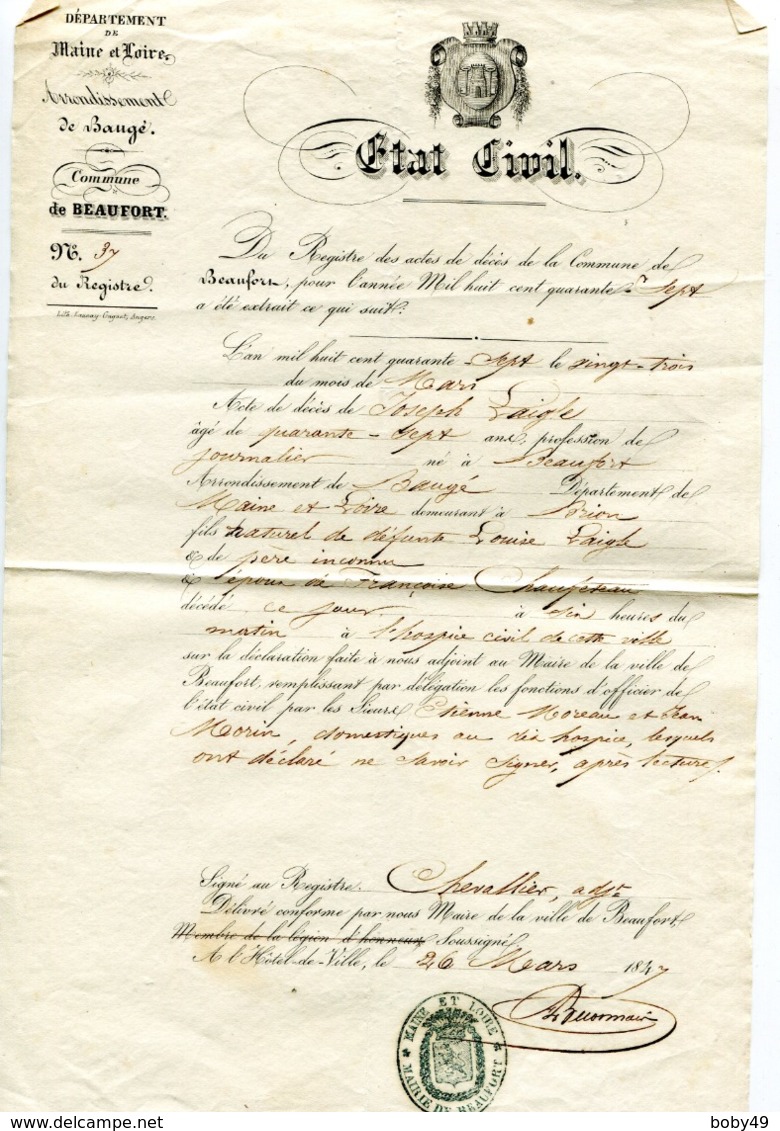 DÉPARTEMENT
DE
Maine et Loire.
Arrondissement
de Baugé.
Commune
de BEAUFORT.
N°. 37
du Registre.
Lith. Launay-Gagnot, Angers.
Etat Civil.
Du Registre des actes de décès de la Commune de
Beaufort, pour l'année Mil huit cent quarante-sept
a été extrait ce qui suit:
L'an mil huit cent quarante sept le vingt-trois
du mois de Mars
Acte de décès de Joseph Laigle
âgé de quarante-sept ans, profession de
journalier né à Beaufort
Arrondissement de Baugé Département de
Maine et Loire demeurant à Brion
fils naturel de défunte Louise Laigle
& de père inconnu
& époux de Françoise
décédé ce jour à six heures du
matin à l'hospice civil de cette ville
sur la déclaration faite à nous adjoint au Maire de la ville de
Beaufort, remplissant par délégation les fonctions d'officier de
l'état civil par les Sieurs Etienne Moreau et Jean
Morin, domestiques au dit hospice, lesquels
ont déclaré ne savoir signer, après lecture.
Signé au Registre. Chevallier, adjt.
Délivré conforme par nous Maire de la ville de Beaufort,
Membre de la légion d'honneur Soussigné
A l'Hôtel-de-Ville, le 26 Mars 1847
MAINE ET LOIRE
MAIRIE DE BEAUFORT
boby49